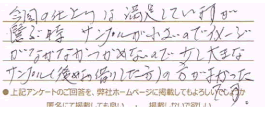 今回の仕上りは満足していますが
選ぶ時 サンプルが小さいのでイメージ
がなかなかつかめないので少し大きな
サンプル(後めお借りした方)の方がよかった
です。
●上記アンケートのご回答を、弊社ホームページに掲載してもよろしいですか
匿名にて掲載しても良い ・ 掲載しないで欲しい